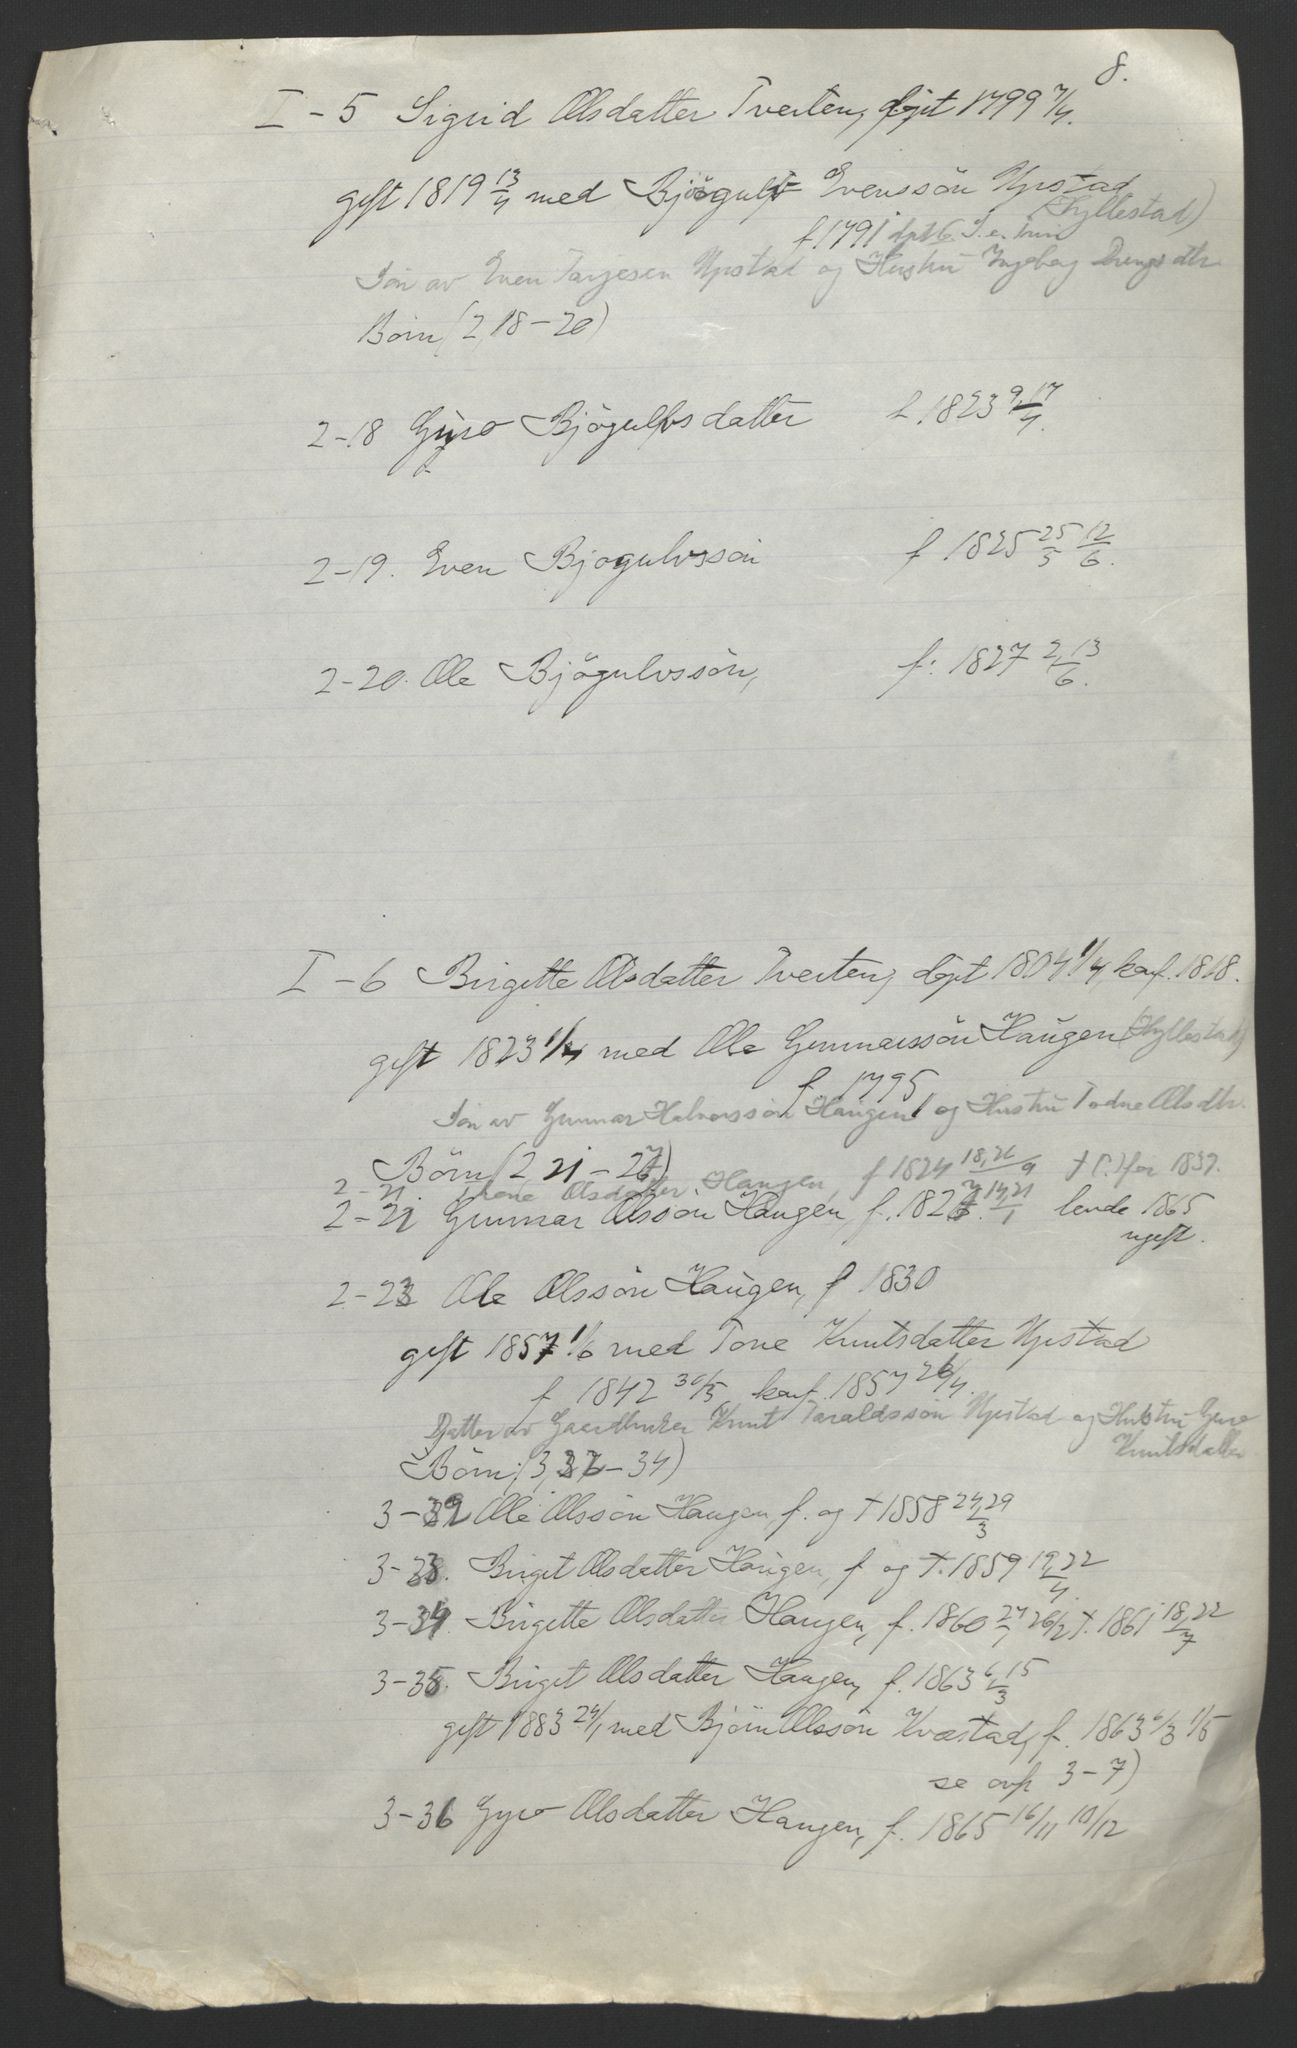 8.
I - 5 Sigrid Olsdatter Tveiten, døpt 1799 7/4.
gift 1819 13/4 med Bjøgulv Evenssön Upstad
(Hyllestad)
f. 1791 døpt 6
Søn av Even Tarjesen Upstad og Hustru Ingeborg Drengsdtr
Börn (2,18-20)
2-18 Gyro Bjøgulvsdatter f. 1823 9,17/4.
2-19. Even Bjøgulvssön f 1825 25/5 12/6.
2-20. Ole Bjögulvssön, f. 1827 2,13/6.
I - 6 Birgitte Olsdatter Tveiten, døpt 1804 1/4, konf. 1818.
gift 1823 1/4 med Ole Gunnarssön Haugen (Hyllestad)
f. 1795
Søn av Gunnar Halvorssön Haugen og Hustru Todne Olsdtr.
Börn (2 21-27)
2-21. Olsdatter Haugen, f 1824 18,26/9 + før 1839.
2-22 Gunnar Olssön Haugen, f. 14,21/1 levde 1865
ugift.
2-23 Ole Olssön Haugen, f 1830
gift 1857 1/6 med Tone Knutsdatter Upstad
f. 1842 30/3, konf. 1857 26/4.
Datter av Gaardbruker Knut Taraldssön Upstad og Hustru Gyro
Knutsdatter
Börn: (3, 32-34)
3-32 Ole Olssön Haugen, f. og + 1858 24,29/3
3-33. Birget Olsdatter Haugen, f og +. 1859 19,22/4.
3-34. Birgitte Olsdatter Haugen, f. 1860 27/1 26/2 +. 1861 18,22/7
3-35. Birget Olsdatter Haugen, f. 1863 6,15/3
gift 1883 24/1 med Björn Olssön Kvæstad, f. 1863 6/3 1/5
se 3-7)
3-36 Gyro Olsdatter Haugen, f. 1865 16/11 10/12